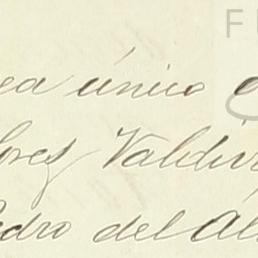 ea único
ores Valdiv
Pedro del Al